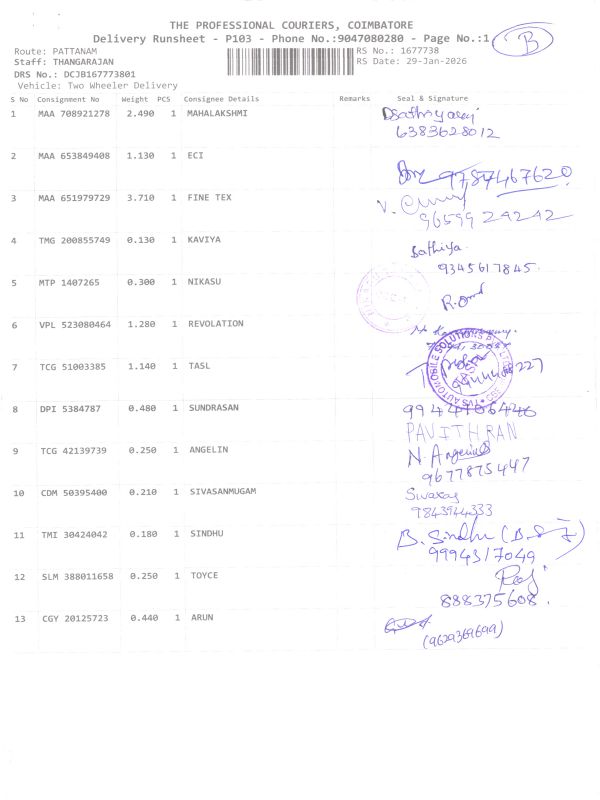 THE PROFESSIONAL COURIERS, COIMBATORE
Delivery Runsheet - P103 - Phone No.:9047080280 - Page No.:1 B
Route: PATTANAM RS No.: 1677738
Staff: THANGARAJAN RS Date: 29-Jan-2026
DRS No.: DCJB167773801
Vehicle: Two Wheeler Delivery
S No Consignment No Weight PCS Consignee Details Remarks Seal & Signature
1 MAA 708921278 2.490 1 MAHALAKSHMI
6383628012
2 MAA 653849408 1.130 1 ECI
9787467620
3 MAA 651979729 3.710 1 FINE TEX V.
96599 24242
4 TMG 200855749 0.130 1 KAVIYA Sathiya
9345617845.
5 MTP 1407265 0.300 1 NIKASU
6 VPL 523080464 1.280 1 REVOLATION
7 TCG 51003385 1.140 1 TASL
8 DPI 5384787 0.480 1 SUNDRASAN
PAVITHRAN
9 TCG 42139739 0.250 1 ANGELIN N. Angelin
9677875447
10 CDM 50395400 0.210 1 SIVASANMUGAM
9843944333
11 TMI 30424042 0.180 1 SINDHU B. Sindhu
9994317049
12 SLM 388011658 0.250 1 TOYCE
888375608.
13 CGY 20125723 0.440 1 ARUN
(9629369699)